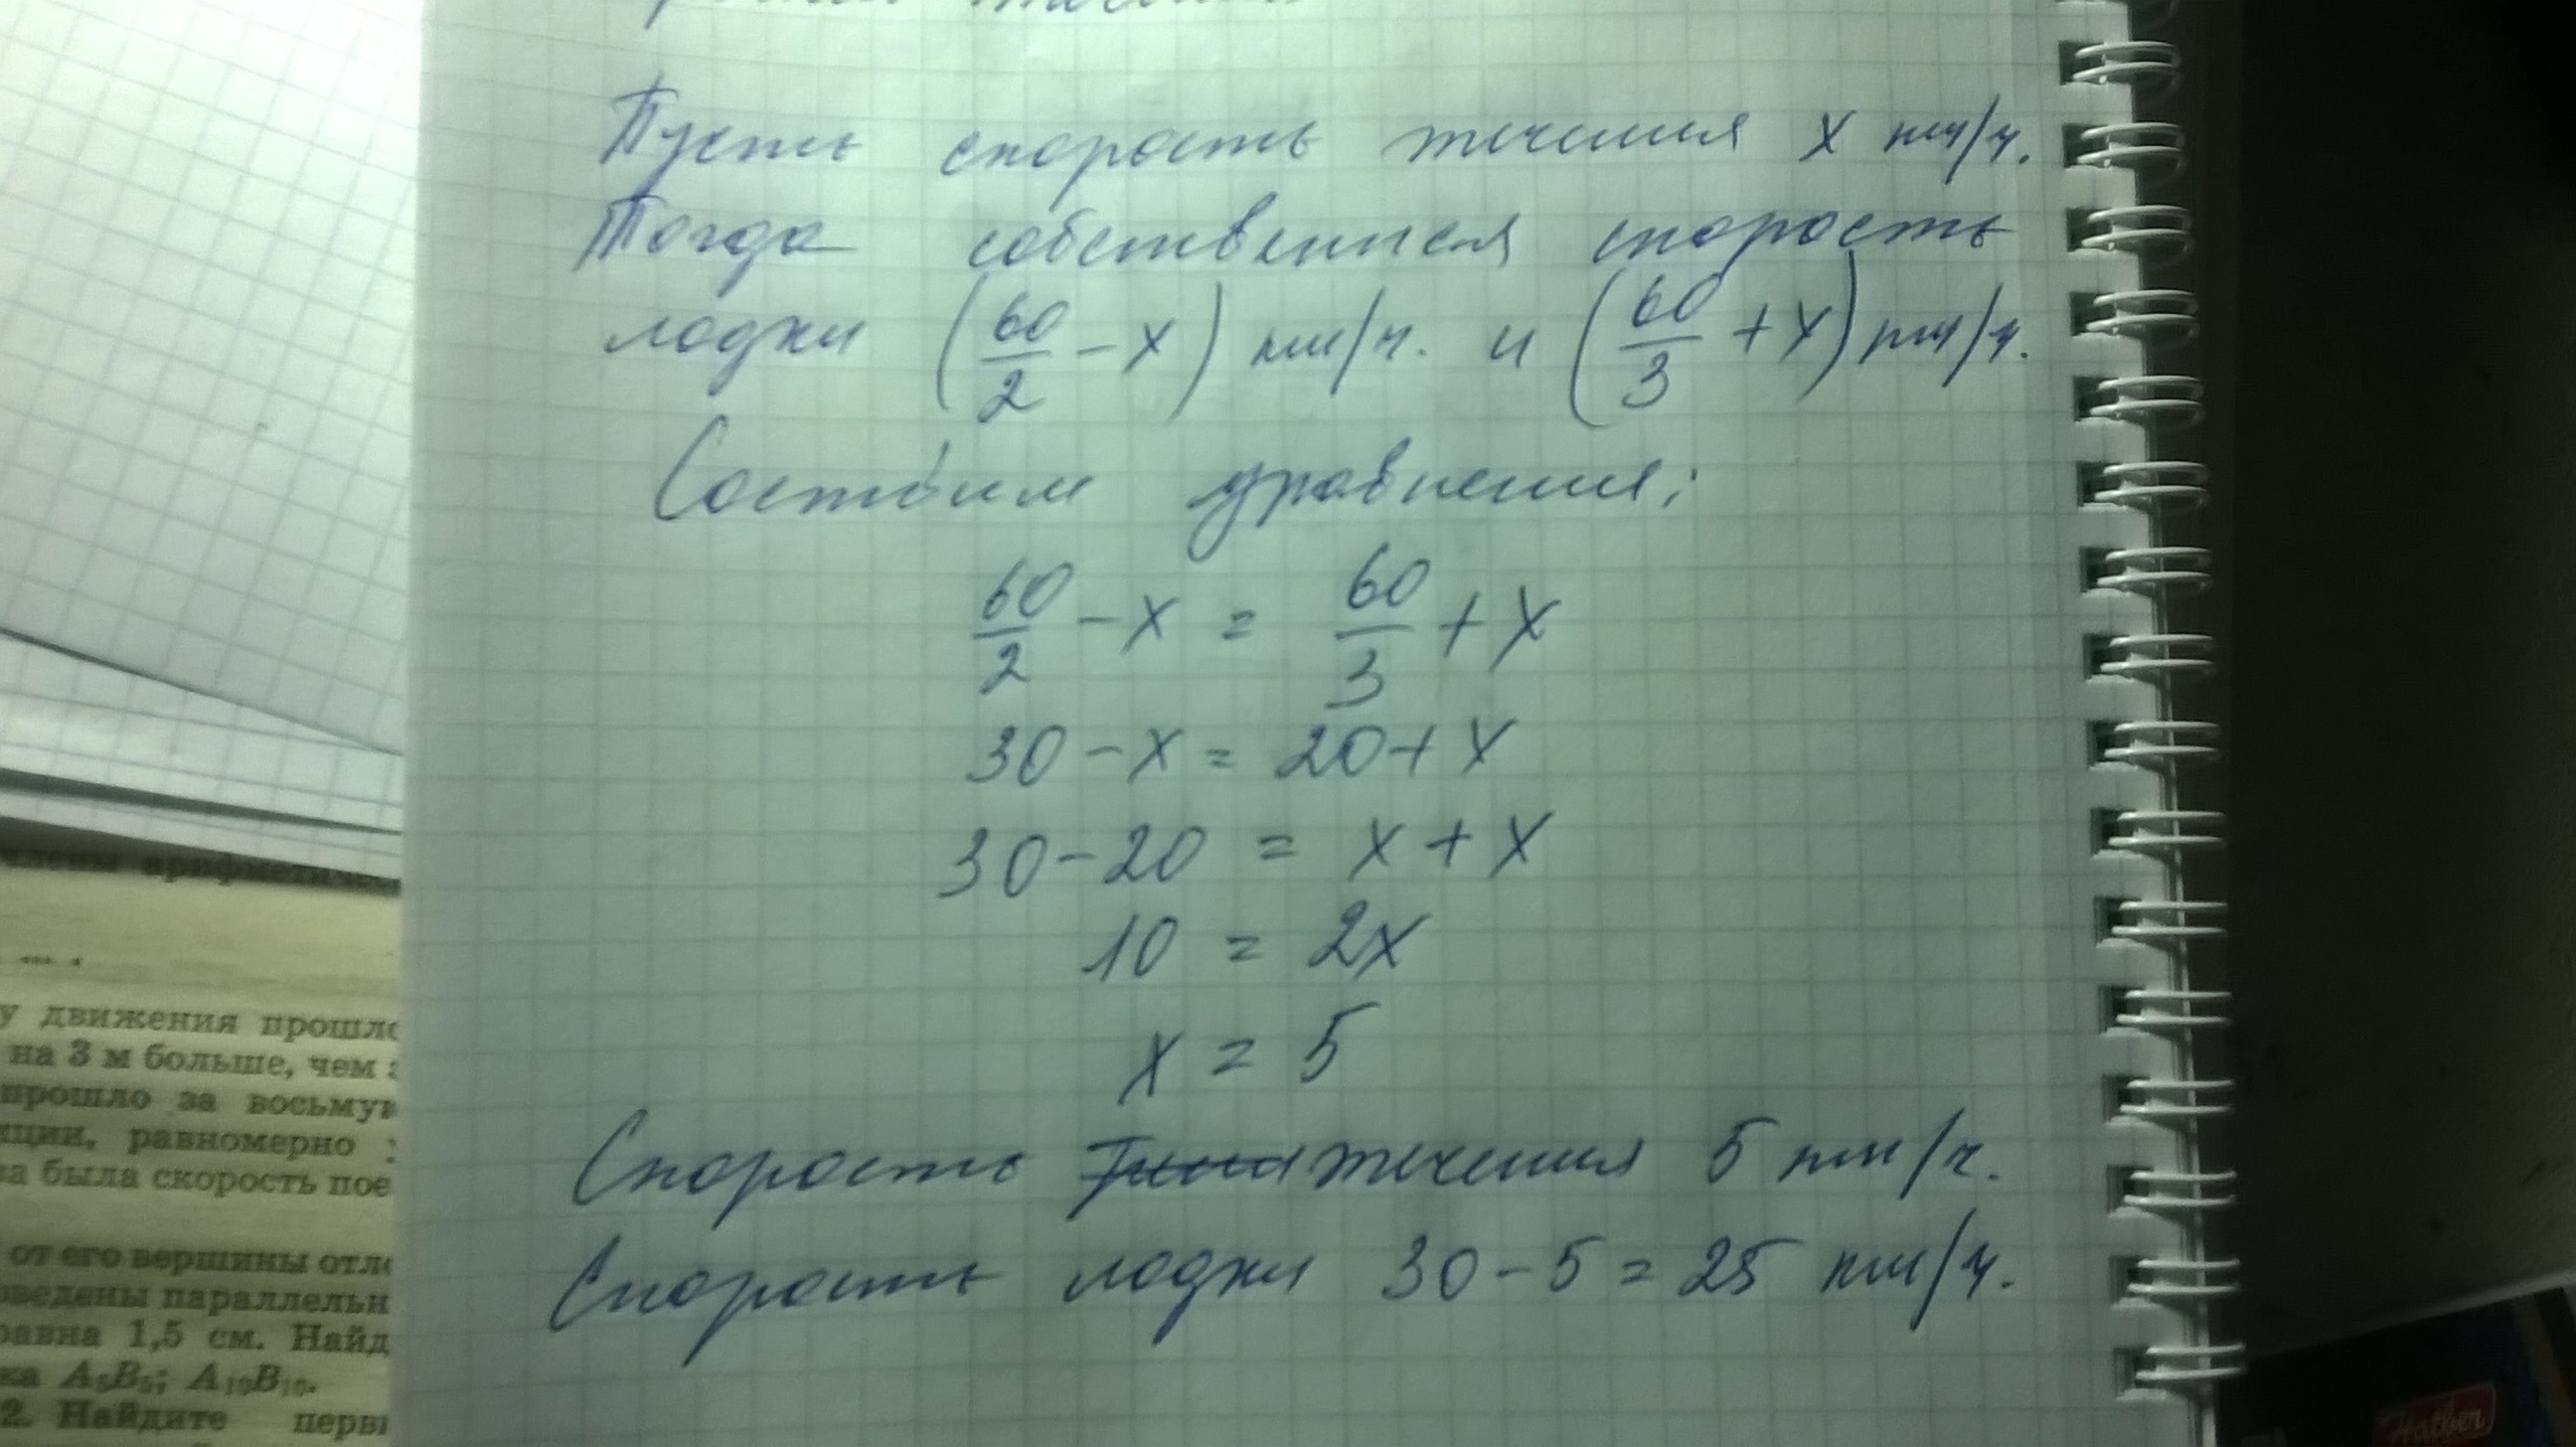 Пусть скорость течения x км/ч.
Тогда собственная скорость
лодки (60/2 - x) км/ч. и (60/3 + x) км/ч.
Составим уравнения:
60/2 - x = 60/3 + x
30 - x = 20 + x
30 - 20 = x + x
10 = 2x
x = 5
Скорость течения 5 км/ч.
Скорость лодки 30 - 5 = 25 км/ч.
... .
у движения прошло
на 3 м больше, чем
прошло за восьмую
ции, равномерно
ва была скорость пое
от его вершины отло
оведены параллельн
равна 1,5 см. Найд
ка A₅B₅; A₁₀B₁₀.
2. Найдите первы
Hatber